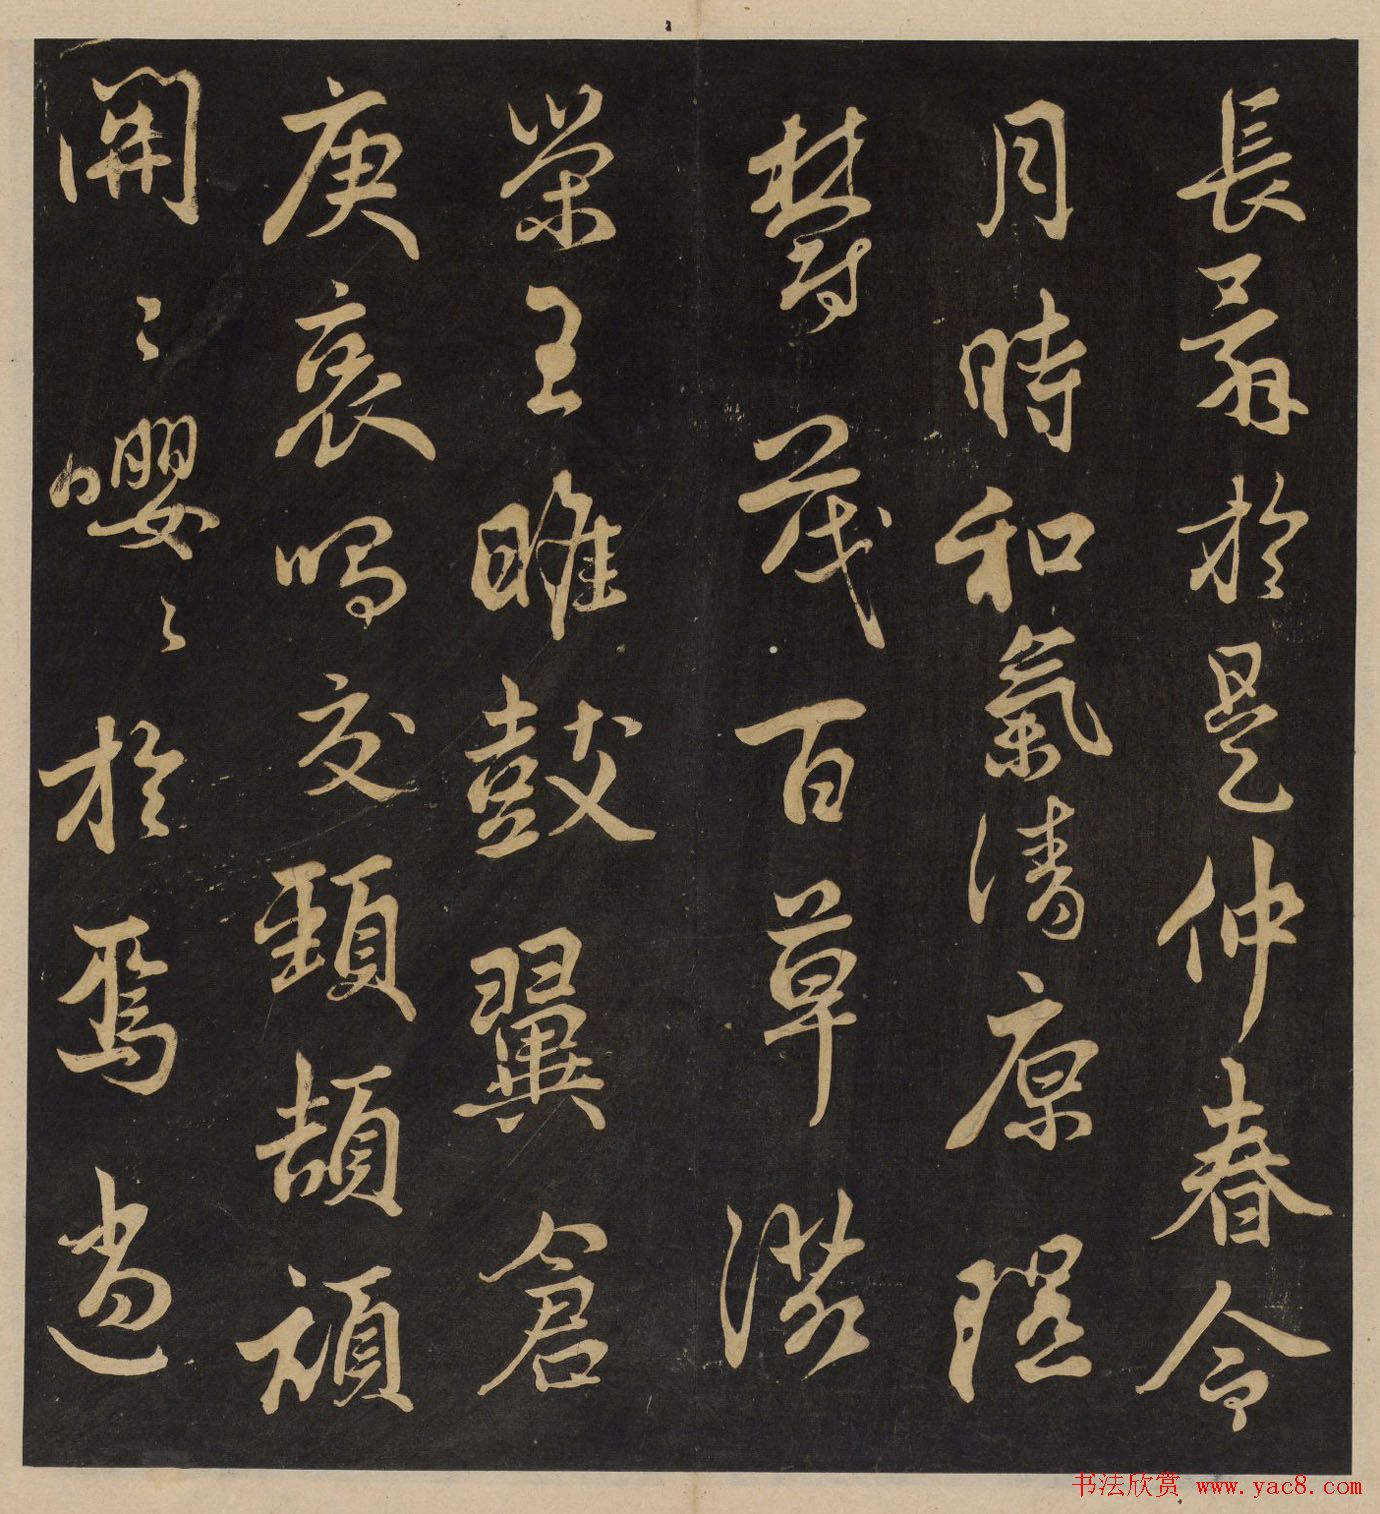 長辭於是仲春令
月時和氣清原隰
鬱茂百草滋
榮王雎鼓翼倉
庚哀鳴交頸頡頏
關々嚶々於焉逍
书法欣赏 www.yac8.com